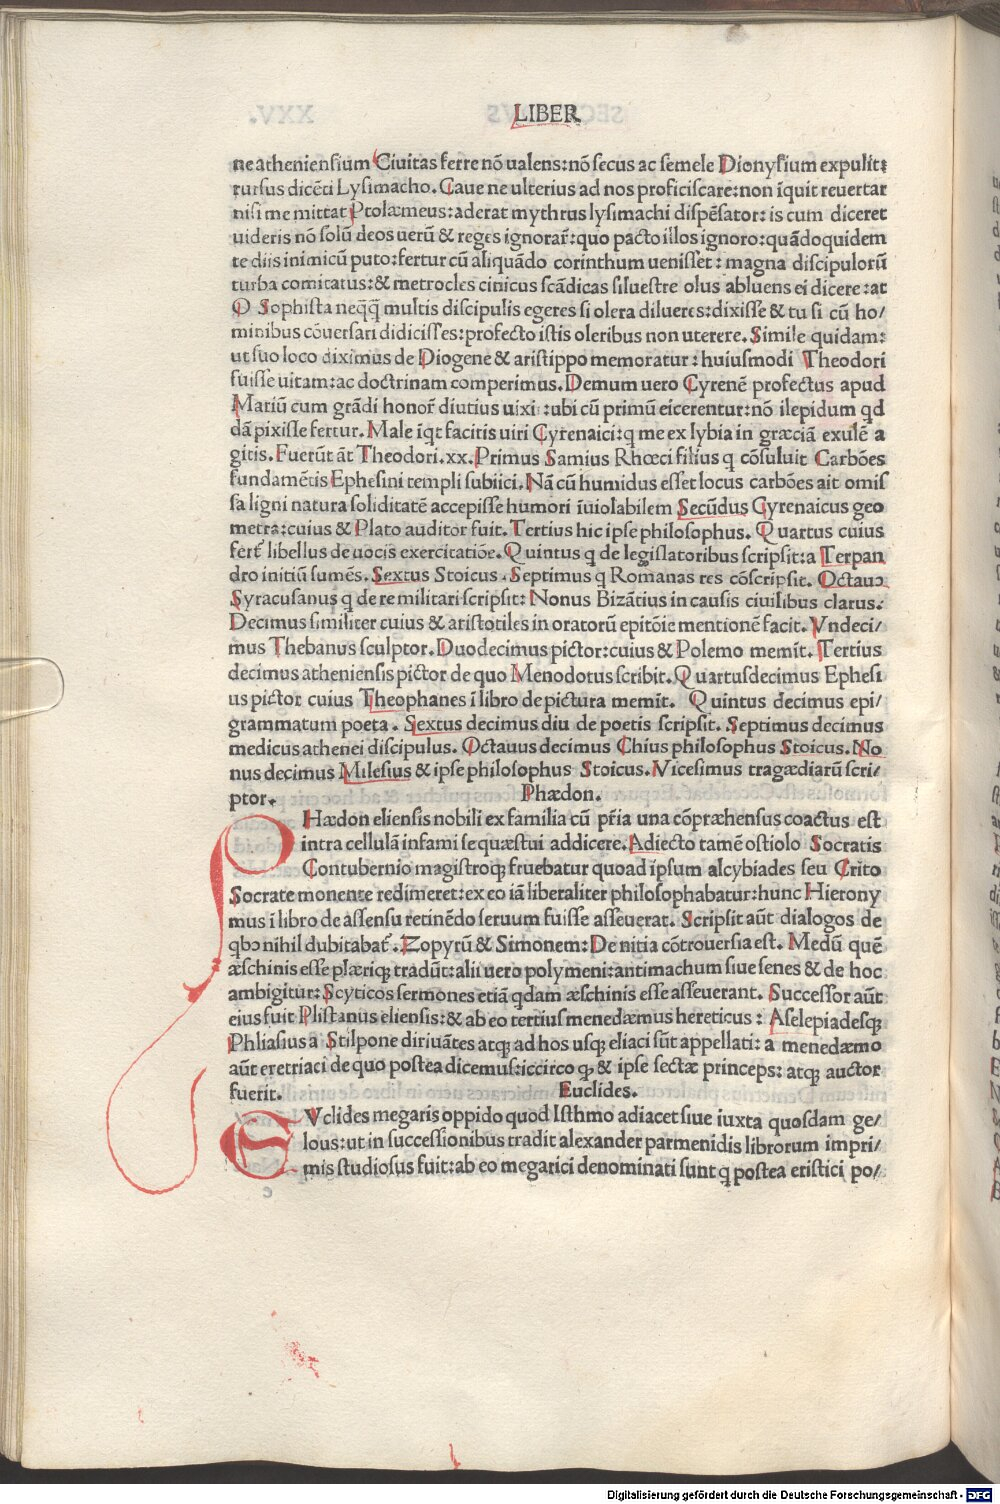 LIBER
ne atheniensium Ciuitas ferre nō ualens: nō secus ac semele Dionysium expulit:
rursus dicēti Lysimacho. Caue ne ulterius ad nos proficiscare: non īquit reuertar
nisi me mittat Ptolæmeus: aderat mythrus lysimachi dispēsator: is cum diceret
uideris nō solū deos uerū & reges ignorar̄: quo pacto illos ignoro: quādoquidem
te diis inimicū puto: fertur cū aliquādo corinthum uenisset: magna discipulorū
turba comitatus: & metrocles cinicus scādicas siluestre olus abluens ei dicere: at
O Sophista neq̄q̄ multis discipulis egeres si olera dilueres: dixisse & tu si cū ho/
minibus cōuersari didicisses: profecto istis oleribus non uterere. Simile quidam:
ut suo loco diximus de Diogene & aristippo memoratur: huiusmodi Theodori
fuisse uitam: ac doctrinam comperimus. Demum uero Cyrenē profectus apud
Mariū cum grādi honor̄ diutius uixi: ubi cū primū eicerentur: nō ilepidum qd
dā pixisse fertur. Male īqt facitis uiri Cyrenaici: q me ex lybia in græciā exulē a
gitis. Fuerūt āt Theodori. xx. Primus Samius Rhœci filius q cōsuluit Carbōes
fundamētis Ephesini templi subiici. Nā cū humidus esset locus carbōes ait omis
sa ligni natura soliditatē accepisse humori īuiolabilem Secūdus Cyrenaicus geo
metra: cuius & Plato auditor fuit. Tertius hic ipse philosophus. Quartus cuius
fert̄ libellus de uocis exercitatiōe. Quintus q de legislatoribus scripsit: a Terpan
dro initiū sumēs. Sextus Stoicus. Septimus q Romanas res cōscripsit. Octauꝰ
Syracusanus q de re militari scripsit: Nonus Bizātius in causis ciuilibus clarus.
Decimus similiter cuius & aristotiles in oratorū epitōie mentionē facit. Vndeci/
mus Thebanus sculptor. Duodecimus pictor: cuius & Polemo memīt. Tertius
decimus atheniensis pictor de quo Menodotus scribit. Quartusdecimus Ephesi
us pictor cuius Theophanes ī libro de pictura memīt. Quintus decimus epi/
grammatum poeta. Sextus decimus diu de poetis scripsit. Septimus decimus
medicus athenei discipulus. Octauus decimus Chius philosophus Stoicus. No
nus decimus Milesius & ipse philosophus Stoicus. Vicesimus tragædiarū scri/
ptor.
Phædon.
PHædon eliensis nobili ex familia cū pr̄ia una cōpræhensus coactus est
intra cellulā infami se quæstui addicere. Adiecto tamē ostiolo Socratis
Contubernio magistroq; fruebatur quoad ipsum alcybiades seu Crito
Socrate monente redimeret: ex eo iā liberaliter philosophabatur: hunc Hierony
mus ī libro de assensu retinēdo seruum fuisse asseuerat. Scripsit aūt dialogos de
qbꝰ nihil dubitabat̄. Zopyrū & Simonem: De nitia cōtrouersia est. Medū quē
æschinis esse plæriq; tradūt: alii uero polymeni: antimachum siue senes & de hoc
ambigitur: Scyticos sermones etiā qdam æschinis esse asseuerant. Successor aūt
eius fuit Plistanus eliensis: & ab eo tertius menedæmus hereticus: Aselepiadesq;
Phliasius a Stilpone diriuātes atq; ad hos usq; eliaci sūt appellati: a menedæmo
aūt eretriaci de quo postea dicemus: iccirco q; & ipse sectæ princeps: atq; auctor
fuerit.
Euclides.
EVclides megaris oppido quod Isthmo adiacet siue iuxta quosdam ge/
lous: ut in successionibus tradit alexander parmenidis librorum impri/
mis studiosus fuit: ab eo megarici denominati sunt q postea eristici po/
Digitalisierung gefördert durch die Deutsche Forschungsgemeinschaft - DFG